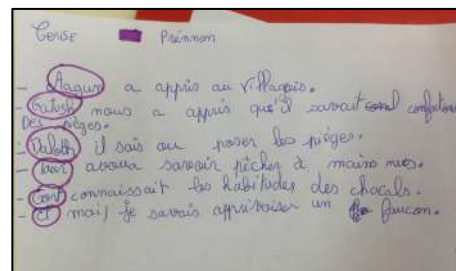 Cerise Prénnom
- Aagun a appris au villageois.
- Gatuck nous a appris qu'il savait confectionner
Des pièges.
- Daloth il sais ou poser les pièges.
- avoua savoir pêcher à mains nues.
- connaissait les habitudes des chacals.
- et moi, je savais apprivoiser un faucon.